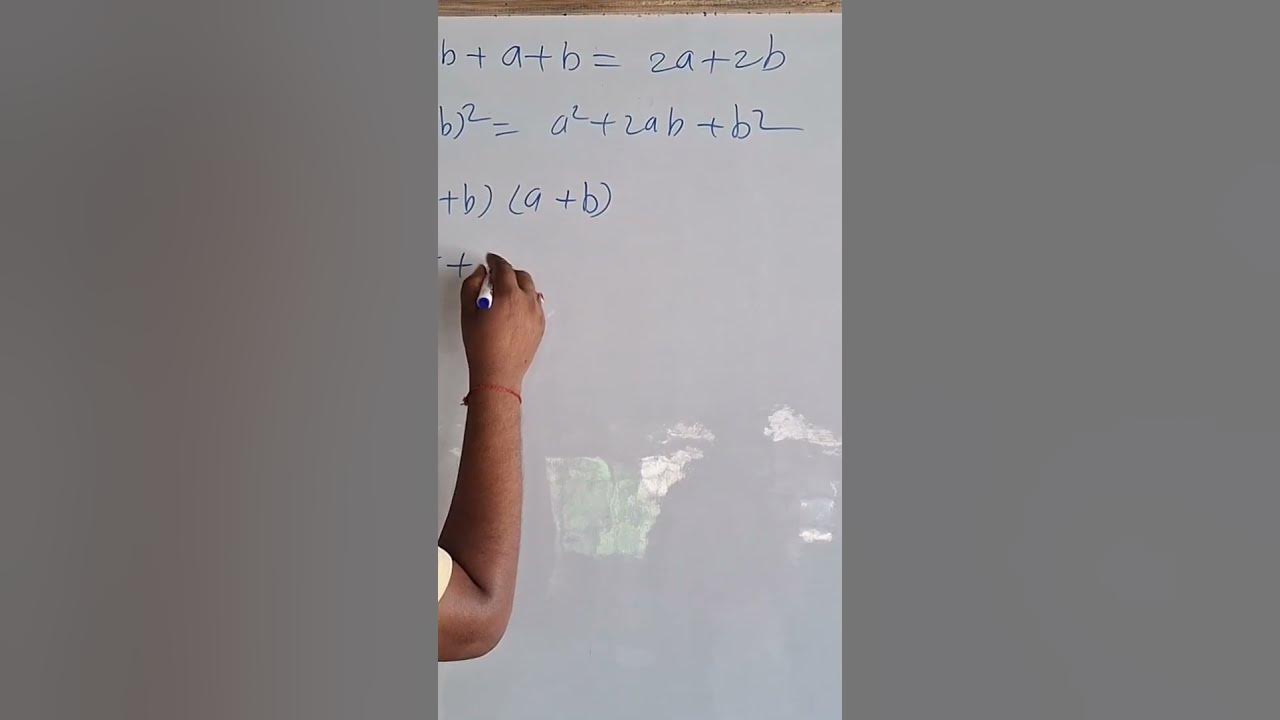 b + a + b = 2a + 2b
b)² = a² + 2ab + b²
+ b) (a + b)
+